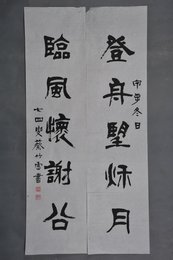 登舟望秋月
甲申冬日
臨風懷謝公
七四叟蔡竹雲書